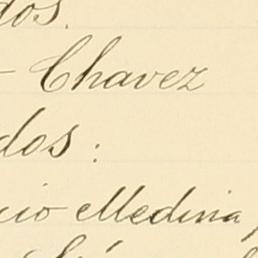 dos.
- Chavez
dos:
cio Medina,